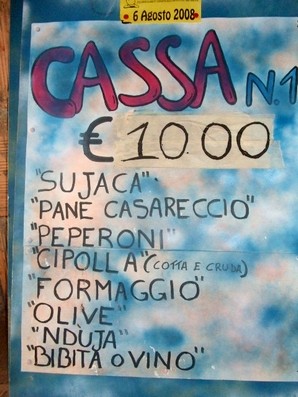 6 Agosto 2008
CASSA N.1
€ 10.00
"SUJACA"
"PANE CASARECCIO"
"PEPERONI"
"CIPOLLA" (COTTA E CRUDA)
"FORMAGGIO"
"OLIVE"
"NDUJA"
"BIBITA O VINO"